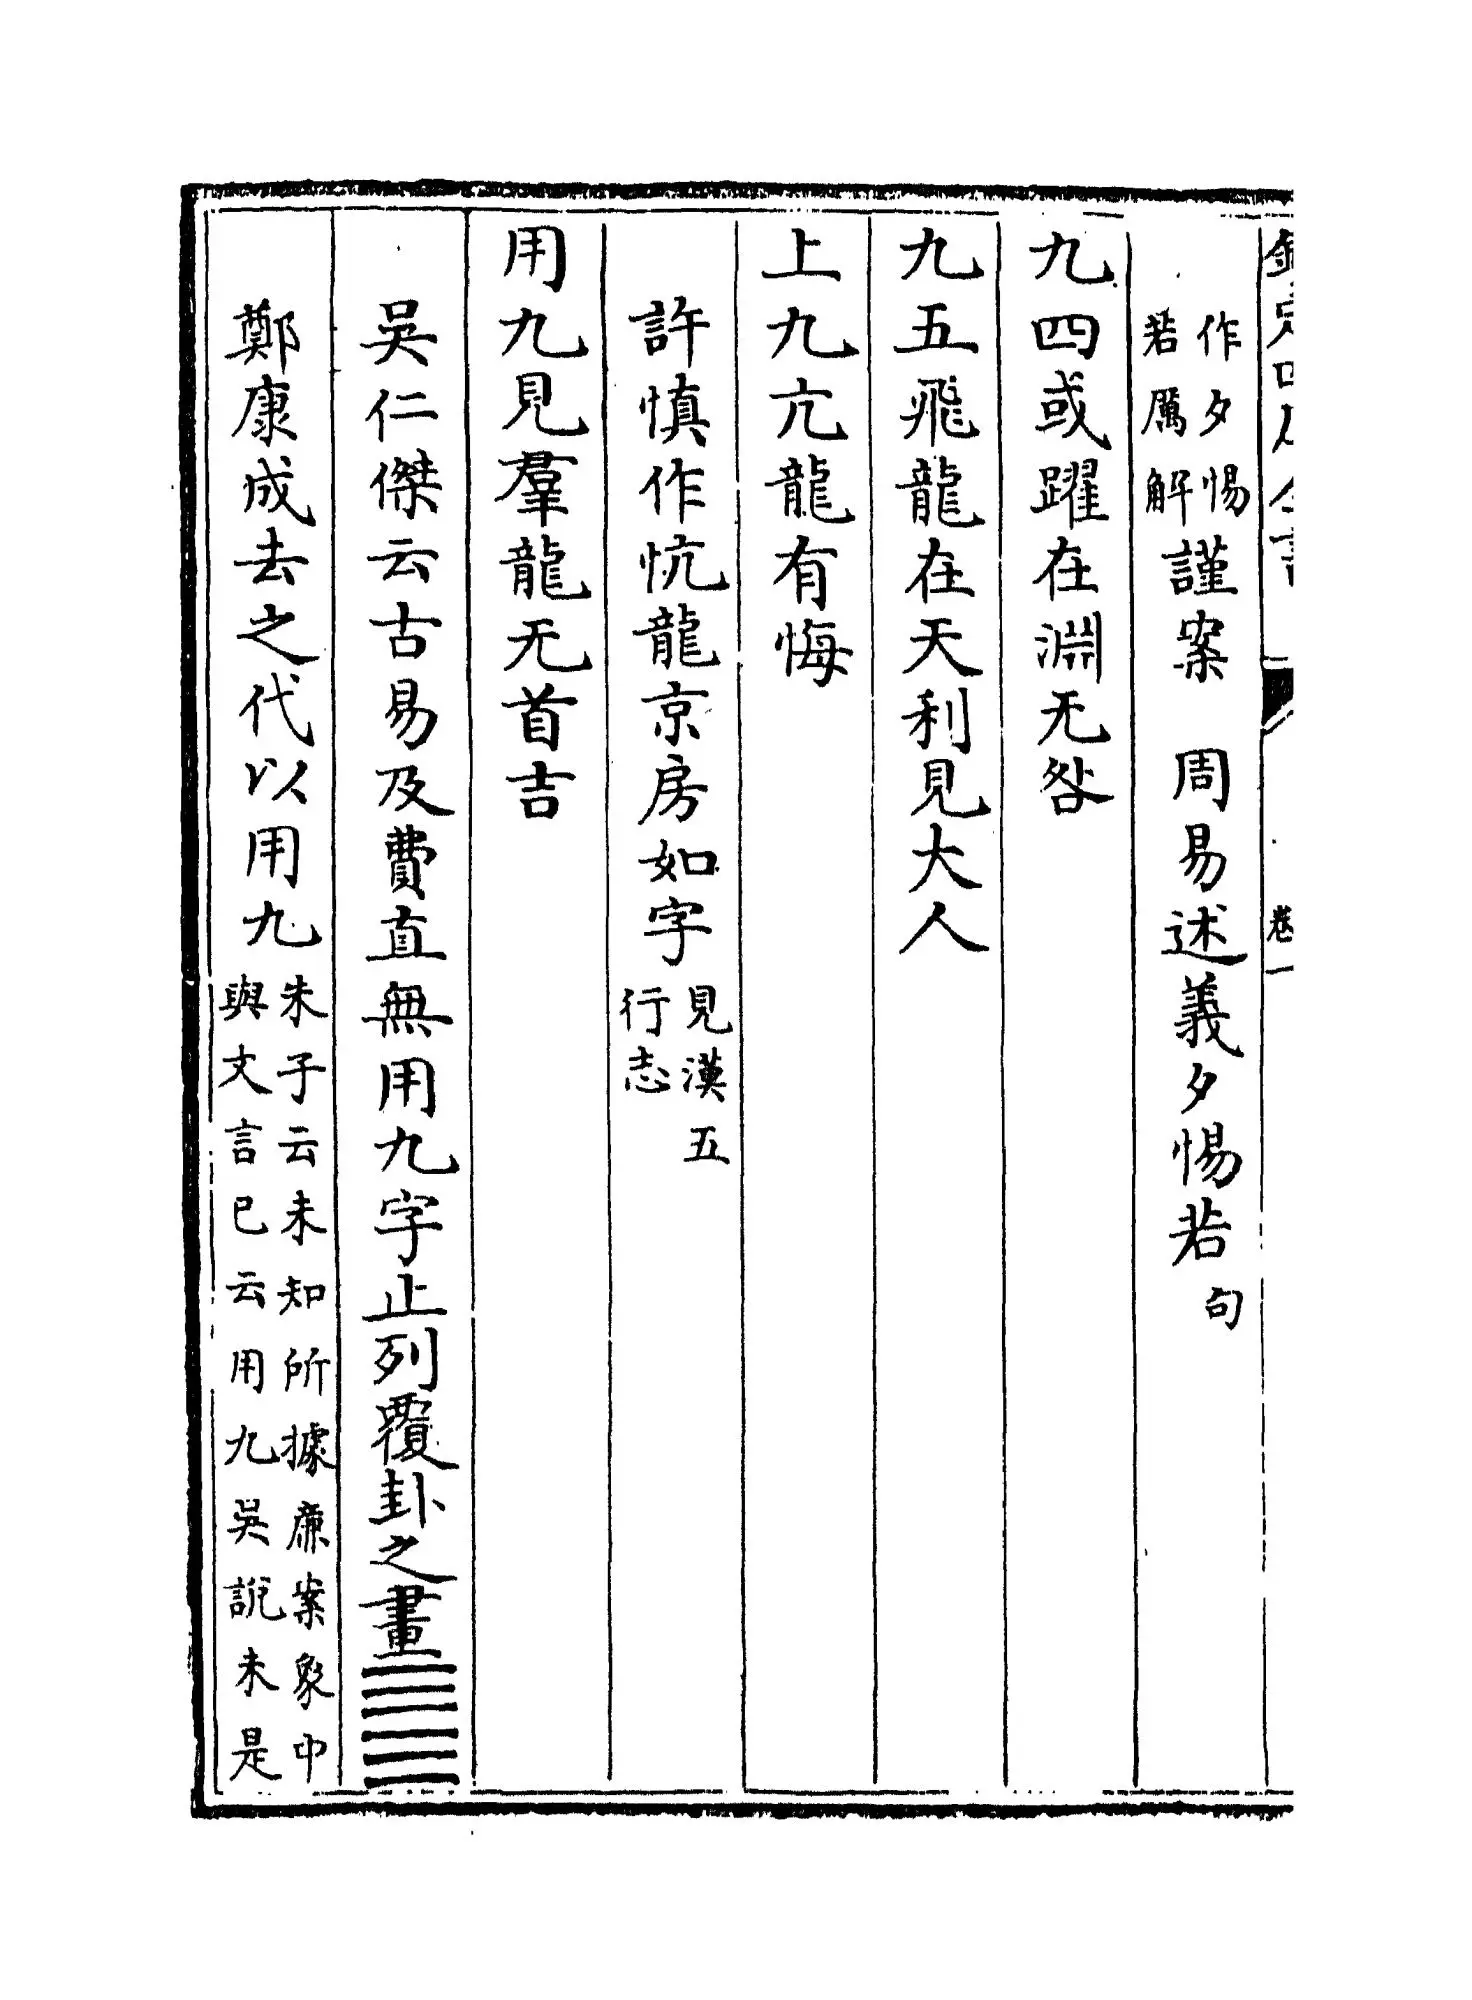 欽定四庫全書
卷一
作夕惕若厲解謹案　周易述義夕惕若句
九四或躍在淵无咎
九五飛龍在天利見大人
上九亢龍有悔
許慎作忼龍京房如字見漢五行志
用九見羣龍无首吉
吳仁傑云古易及費直無用九字止列覆卦之畫䷀
鄭康成去之代以用九朱子云未知所據廉案象中與文言已云用九吳說未是